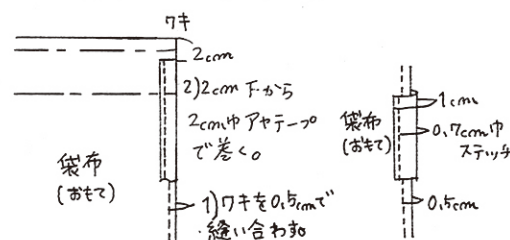 ワキ
2cm
2)2cm下から
2cm巾アヤテープ
で巻く。
袋布
(おもて)
1)ワキを0,5cmで
縫い合わす。
1cm
袋布
(おもて)
0,7cm巾
ステッチ
0,5cm